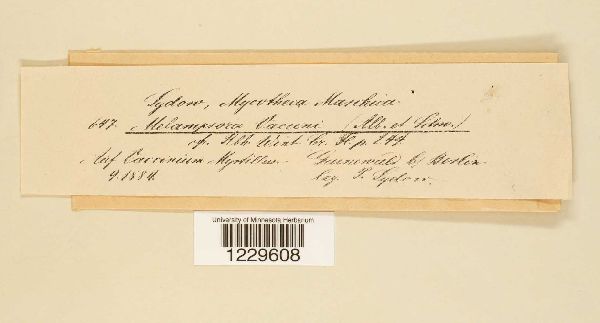 Sydow, Mycotheca Marchica
647. Melampsora Vaccinii (Alb. et Schw.)
cfr. Rbh. Wint. Cr. Fl. p. 244
Auf Vaccinium Myrtillus. Grunewald b/ Berlin
9.1884. leg. P. Sydow.
University of Minnesota Herbarium
1229608